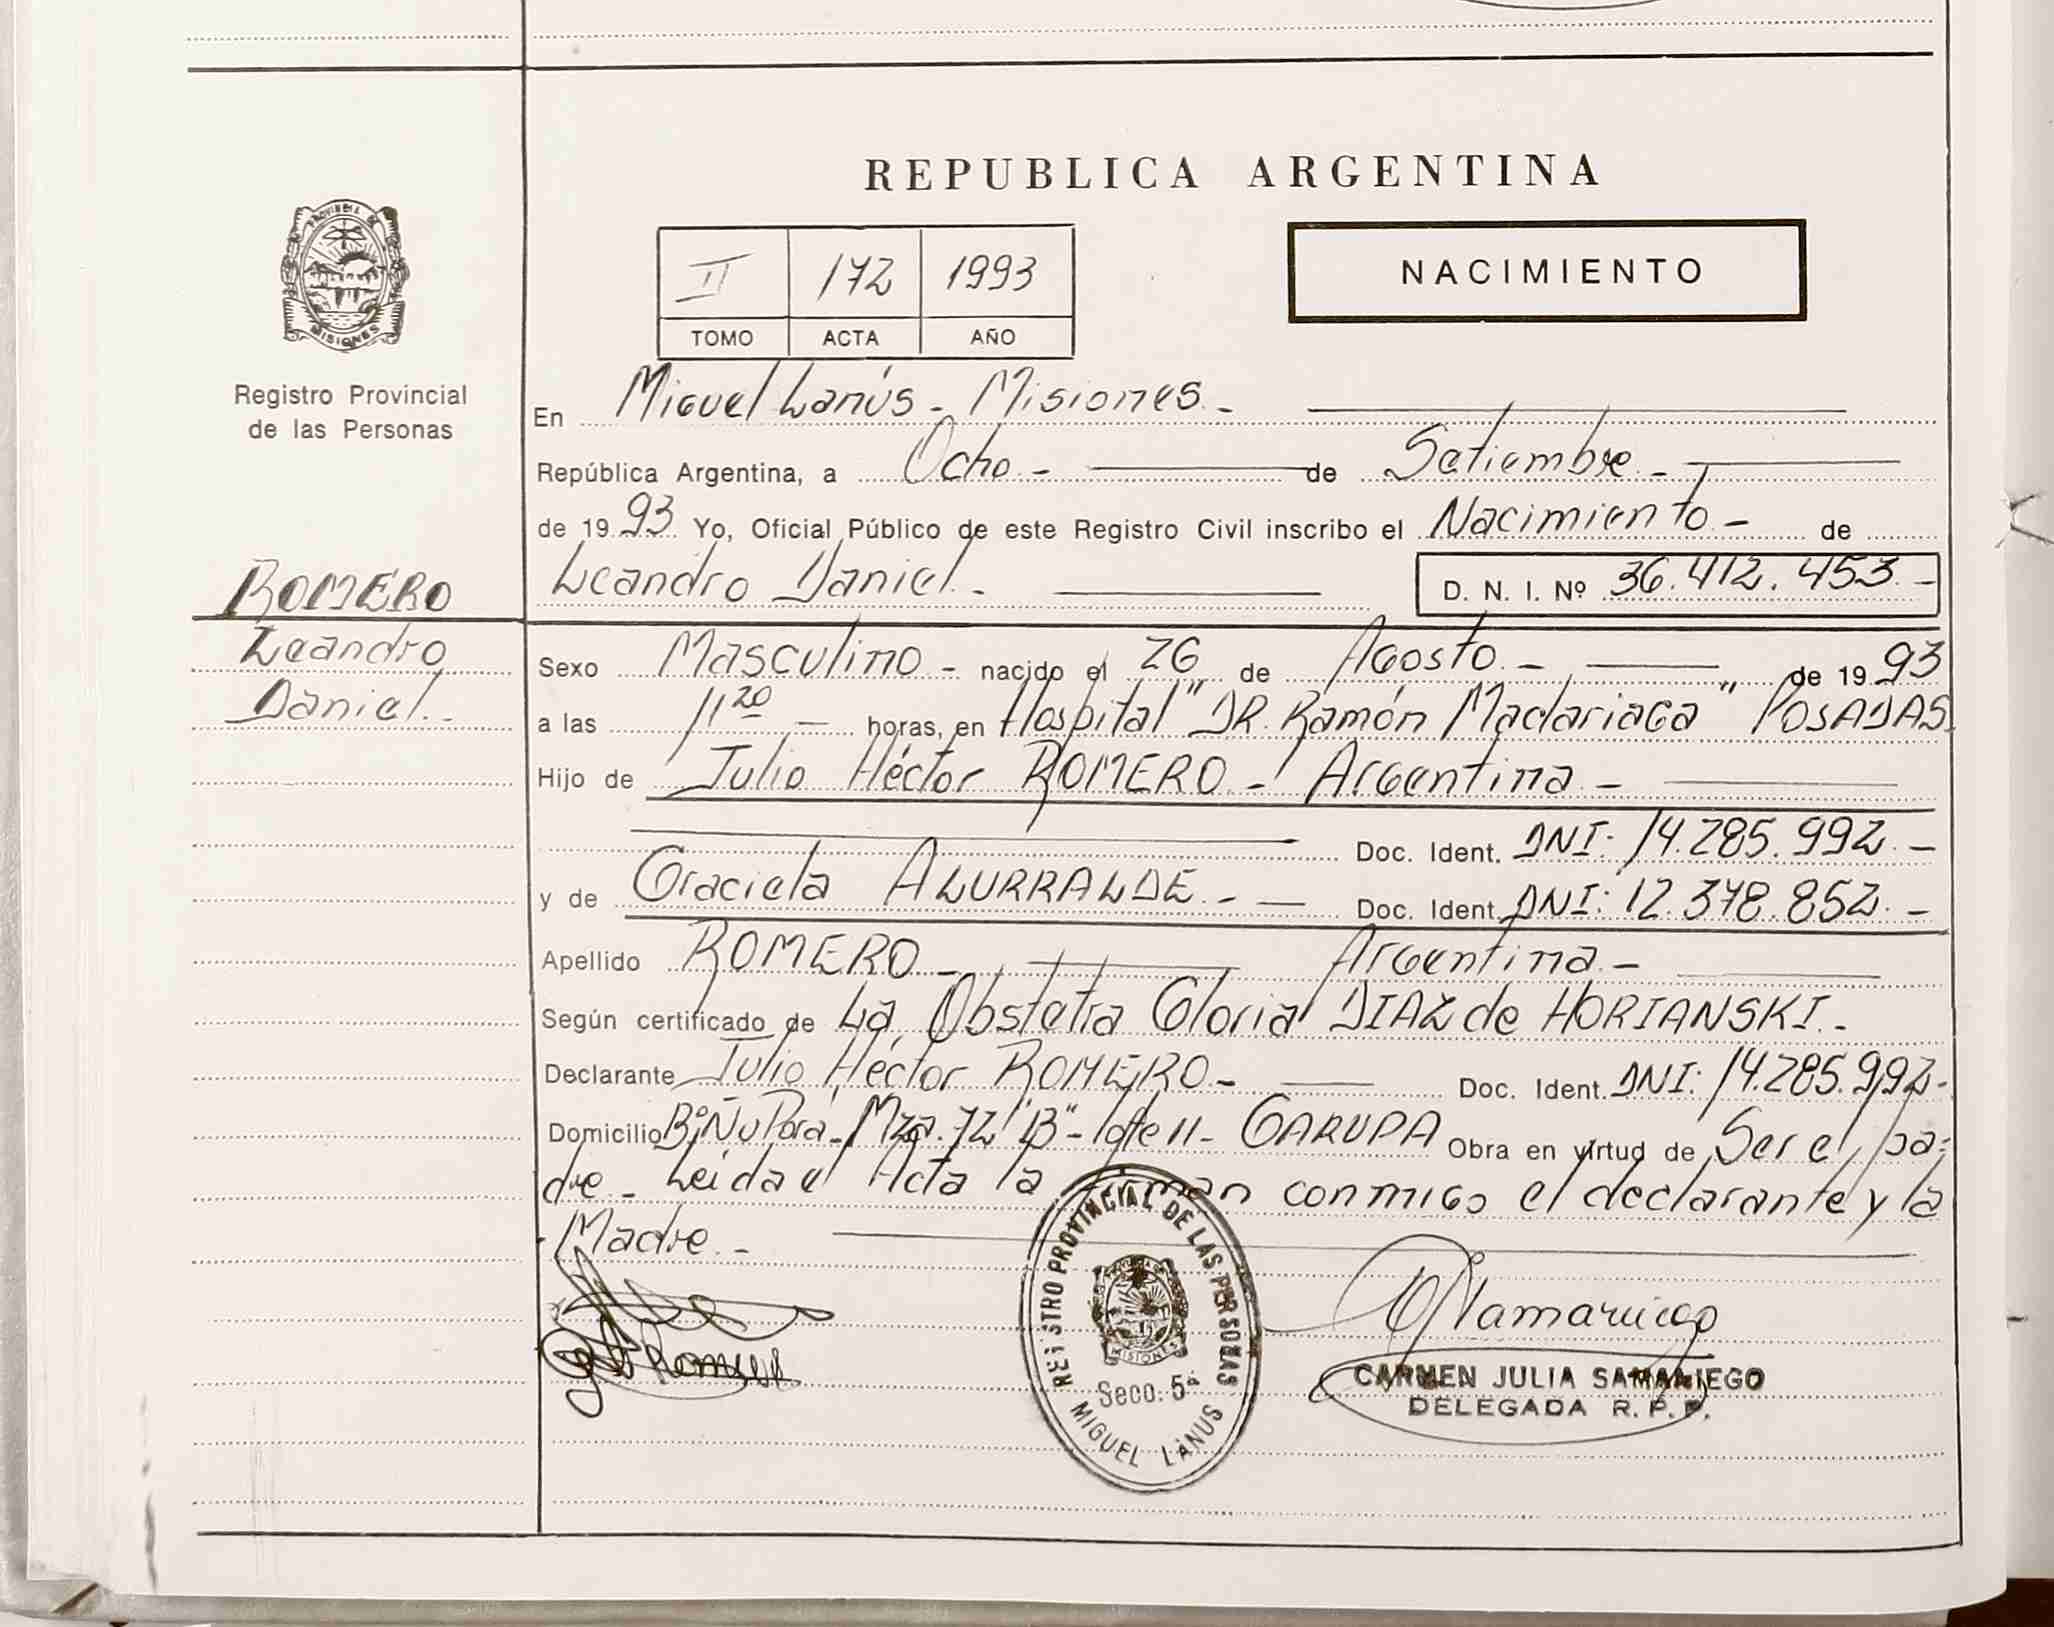 REPUBLICA ARGENTINA
PROVINCIA DE MISIONES
Registro Provincial
de las Personas
II 172 1993
TOMO ACTA AÑO
NACIMIENTO
En Miguel Lanús - Misiones -
República Argentina, a Ocho - de Setiembre -
de 1993 Yo, Oficial Público de este Registro Civil inscribo el Nacimiento - de
ROMERO
Leandro
Daniel.-
Leandro Daniel.- D. N. I. Nº 36.412.453.-
Sexo Masculino - nacido el 26 de Agosto.- de 1993
a las 11 20 - horas, en Hospital "DR. Ramón Madariaga" POSADAS
Hijo de Julio Héctor ROMERO.- Argentina -
Doc. Ident. DNI: 14.285.992.-
y de Graciela ALURRALDE.- - Doc. Ident. DNI: 12.378.852.-
Apellido ROMERO - Argentina.-
Según certificado de La Obstetra Gloria DIAZ de HORIANSKI.-
Declarante Julio Héctor ROMERO.- Doc. Ident. DNI: 14.285.992.-
Domicilio Bº Ñu Porá - Mza. 72 "B" - lote 11 - GARUPA Obra en virtud de Ser el pa=
dre - Leida el Acta la firman conmigo el declarante y la
Madre.-
REGISTRO PROVINCIAL DE LAS PERSONAS
MISIONES
Secc. 5ª
MIGUEL LANUS
CARMEN JULIA SAMANIEGO
DELEGADA R. P. P.